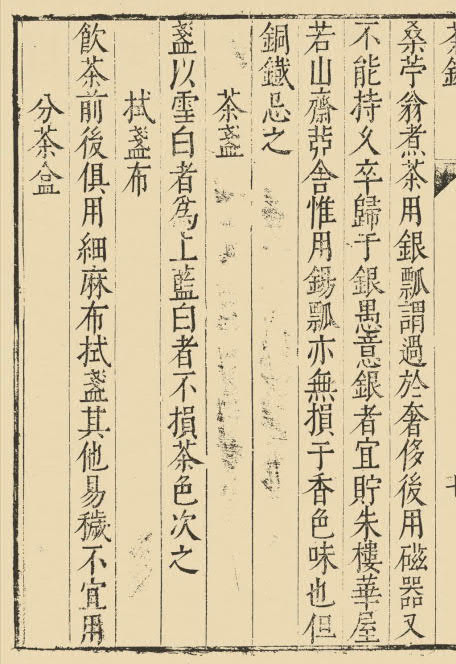 桑苧翁煮茶用銀瓢謂過於奢侈後用磁器又
不能持久卒歸于銀愚意銀者宜貯朱樓華屋
若山齋茆舍惟用錫瓢亦無損于香色味也但
銅鐵忌之
茶盞
盞以雪白者爲上藍白者不損茶色次之
拭盞布
飲茶前後俱用細麻布拭盞其他易穢不宜用
分茶盒